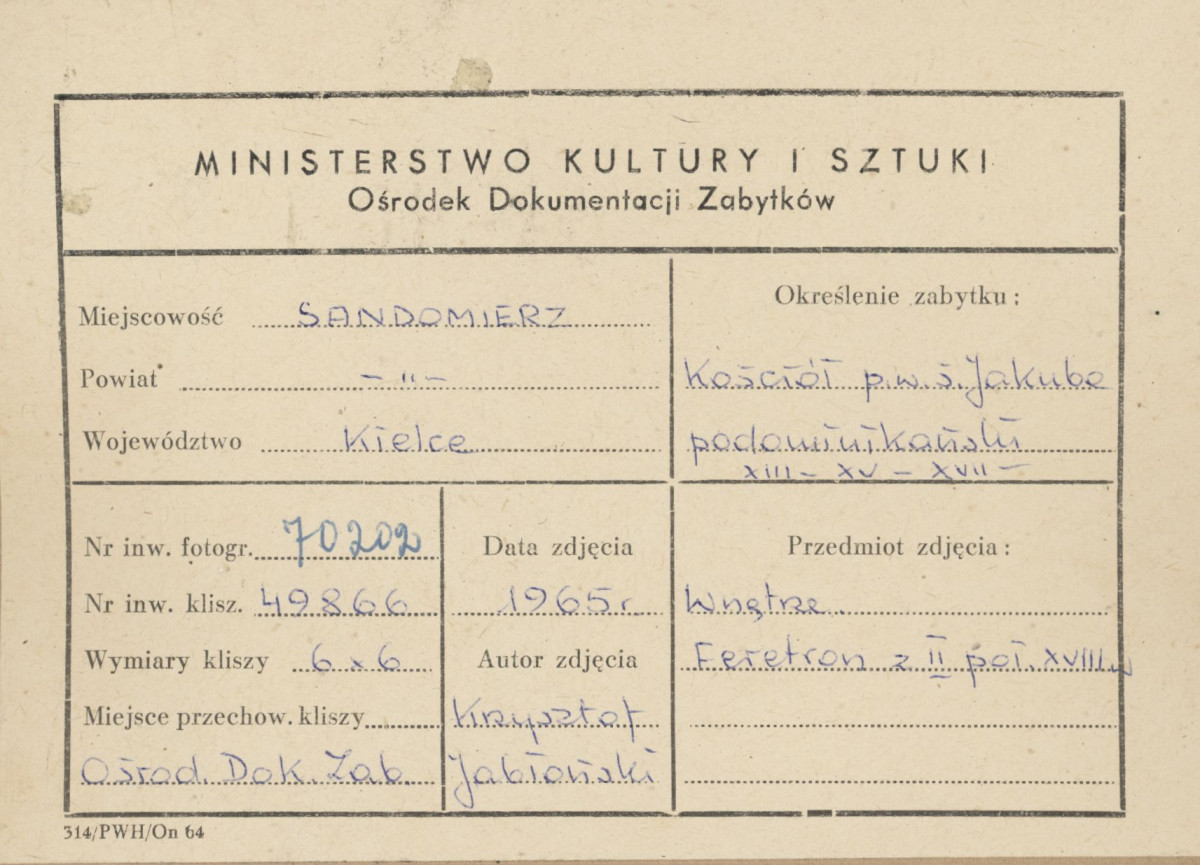 MINISTERSTWO KULTURY I SZTUKI
Ośrodek Dokumentacji Zabytków
Miejscowość SANDOMIERZ
Powiat - " -
Województwo Kielce
Określenie zabytku:
Kościół p.w. ś. Jakuba
podominikański
XIII - XV - XVII -
Nr inw. fotogr. 70202
Nr inw. klisz. 49866
Wymiary kliszy 6 x 6
Miejsce przechow. kliszy
Ośrod. Dok. Zab.
Data zdjęcia
1965 r
Autor zdjęcia
Krzysztof
Jabłoński
Przedmiot zdjęcia:
Wnętrze
Feretron z II poł. XVIII w
314/PWH/On 64